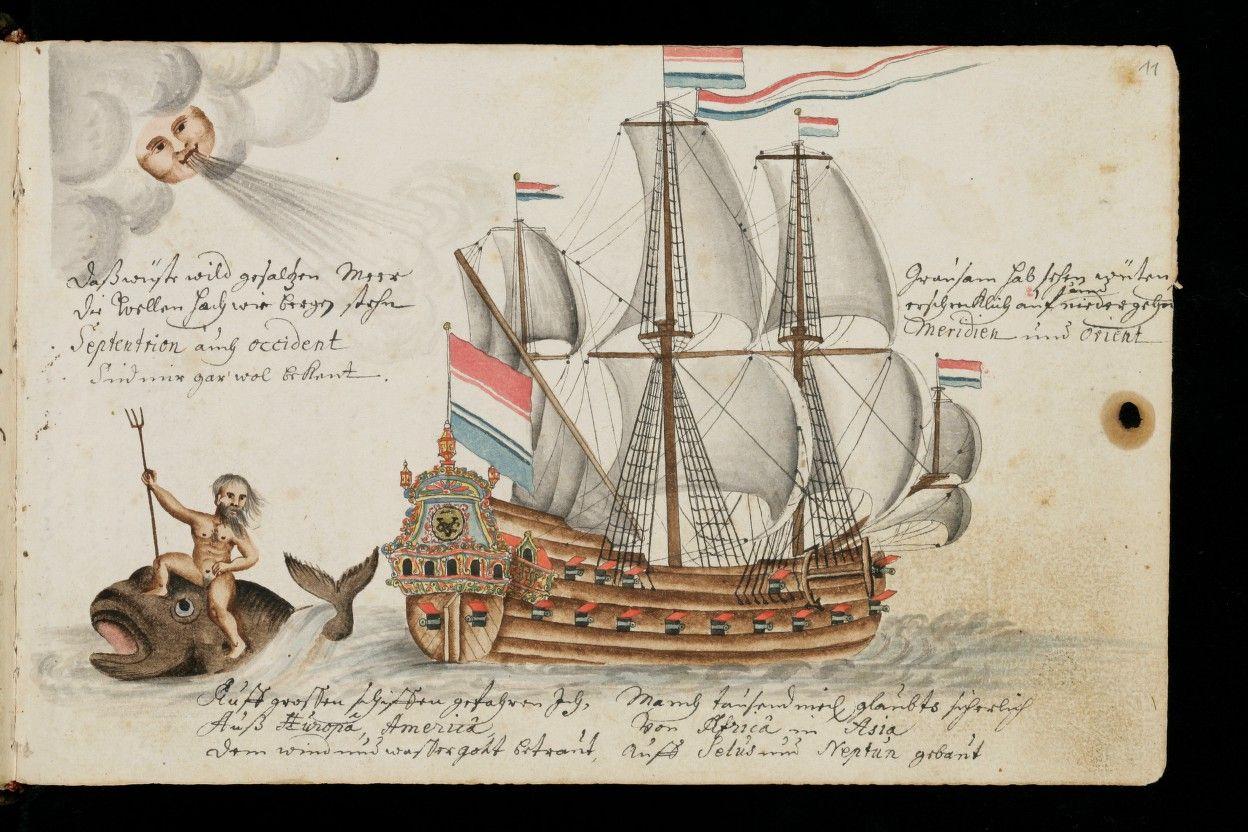 11
Daß wüste wild gesaltzen Meer
die Wellen hoch wie bergen stehn
Septentrion auch occident
Sind mir gar wol bekent.
Grausam hab sehen wüten,
erschrecklich auf und nieder gehn
Meridien und Orient
Auff grossen schiffen gefahren Ich, Manch tausend meil glaubts sicherlich
Auß Europa, America, Von Africa in Asia
Dem wind und wasser gott betraut, Auff und Neptun gebaut